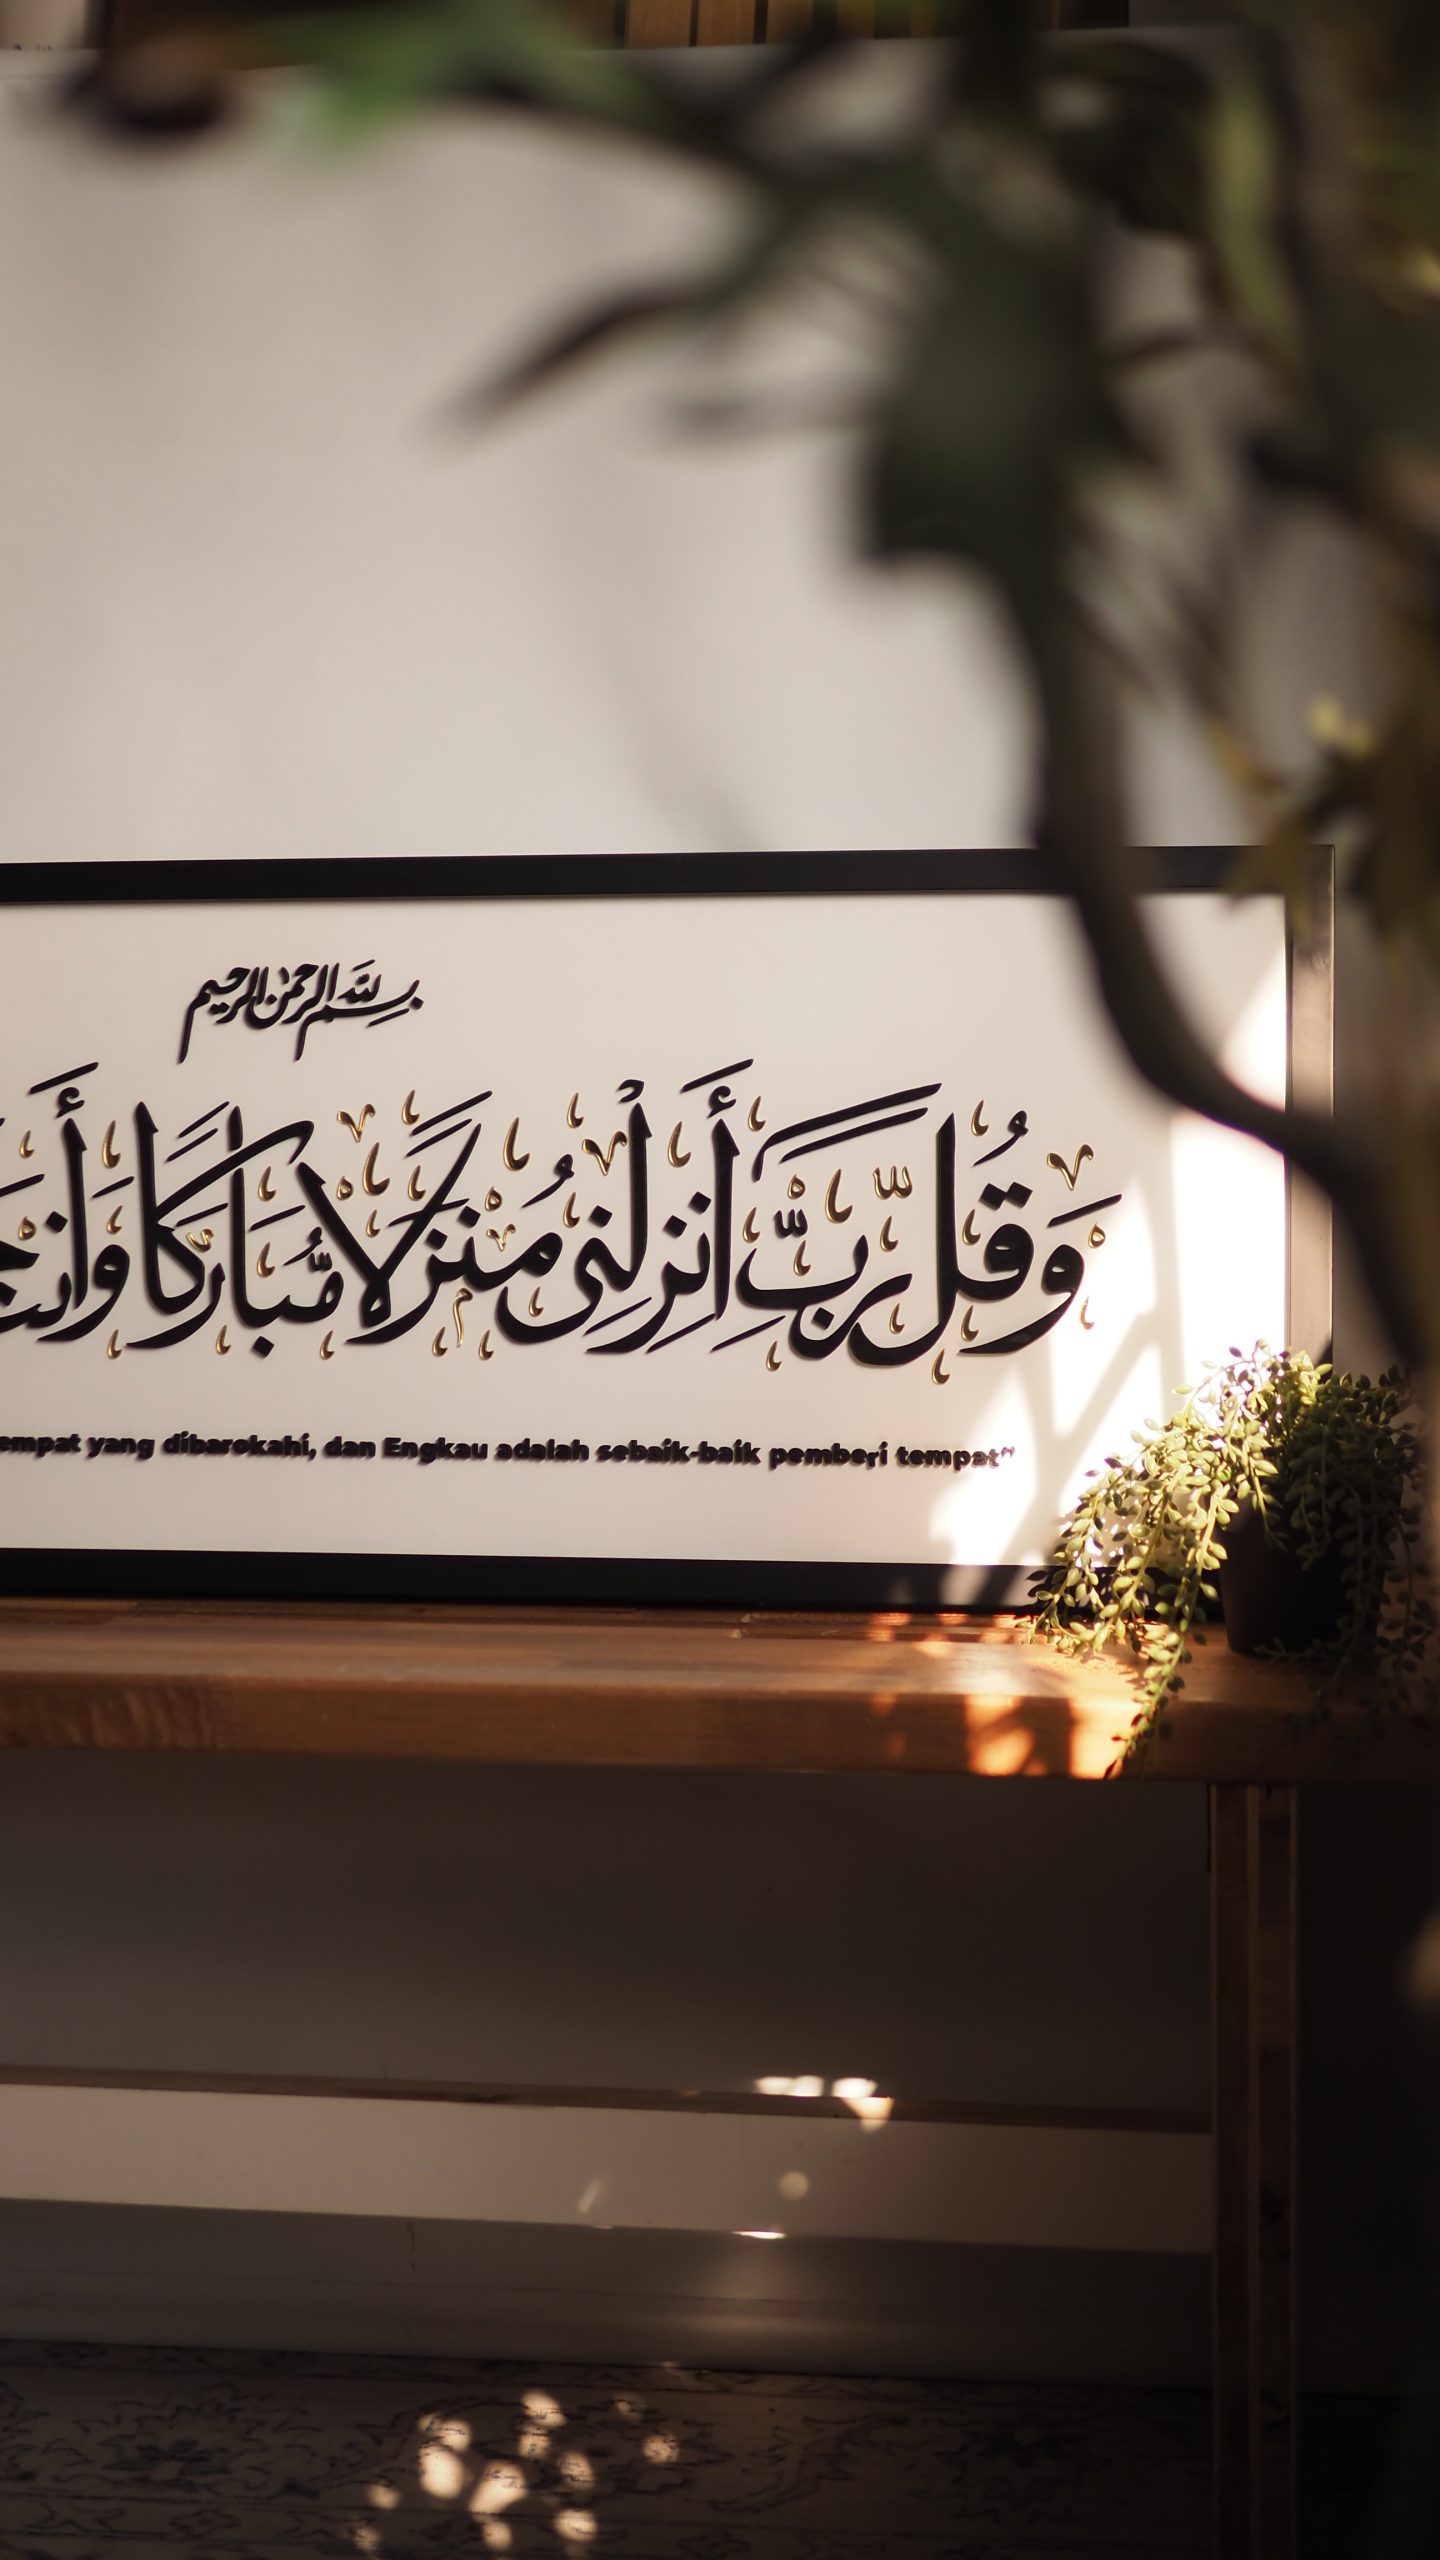 بسم الله الرحمن الرحيم
وَقُل رَّبِّ أَنزِلْنِى مُنزَلًا مُّبَارَكًا وَأَنتَ
yang dibarokahi, dan Engkau adalah sebaik-baik pemberi tempat"